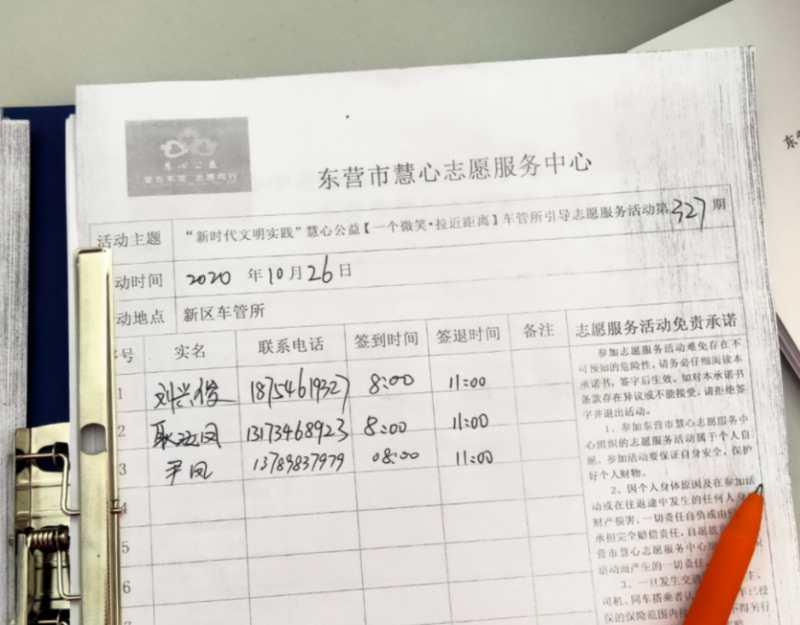 东营市慧心志愿服务中心
活动主题 “新时代文明实践”慧心公益【一个微笑·拉近距离】车管所引导志愿服务活动第327期
动时间 2020 年10月26日
动地点 新区车管所
号 实名 联系电话 签到时间 签退时间 备注 志愿服务活动免责承诺
1 刘兴俊 18754619327 8:00 11:00
2 13173468923 8:00 11:00
3 平凤 13789837979 08:00 11:00
4
5
6
参加志愿服务活动难免存在不
可预知的危险性,请务必仔细阅读本
承诺书,签字后生效。如对本承诺书
条款存在异议或不能接受,请拒绝签
字并退出活动。
1、参加东营市慧心志愿服务中
心组织的志愿服务活动属于个人自
愿。参加活动要保证自身安全,保护
好个人财物。
2、因个人身体原因及在参加活
动或在往返途中发生的任何人身
财产损害,一切责任自负或由
承担完全赔偿责任,自愿放
营市慧心志愿服务中心
活动而产生的一切责任
3、一旦发生交通
司机、同车搭乘者
保的保险范围内